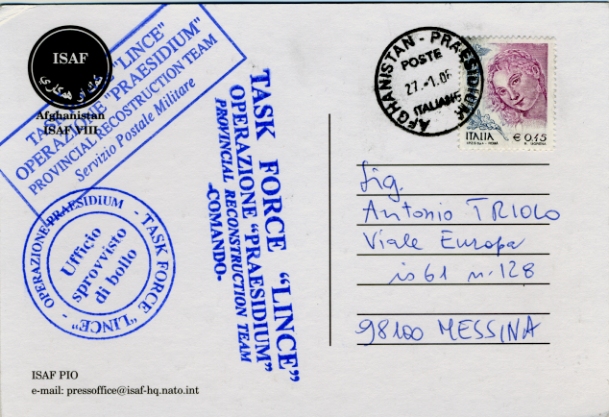 ISAF
Afghanistan
ISAF VIII
TASK FORCE "LINCE"
OPERAZIONE "PRAESIDIUM"
PROVINCIAL RECOSTRUCTION TEAM
Servizio Postale Militare
OPERAZIONE PRAESIDIUM - TASK FORCE "LINCE" -
Ufficio
sprovvisto
di bollo
TASK FORCE "LINCE"
OPERAZIONE "PRAESIDIUM"
PROVINCIAL RECONSTRUCTION TEAM
-COMANDO-
AFGHANISTAN - PRAESIDIUM
POSTE
27.-1.06
ITALIANE
ITALIA € 0,15
Sig.
Antonio TRIOLO
Viale Europa
is 61 n. 128
98100 MESSINA
ISAF PIO
e-mail: pressoffice@isaf-hq.nato.int